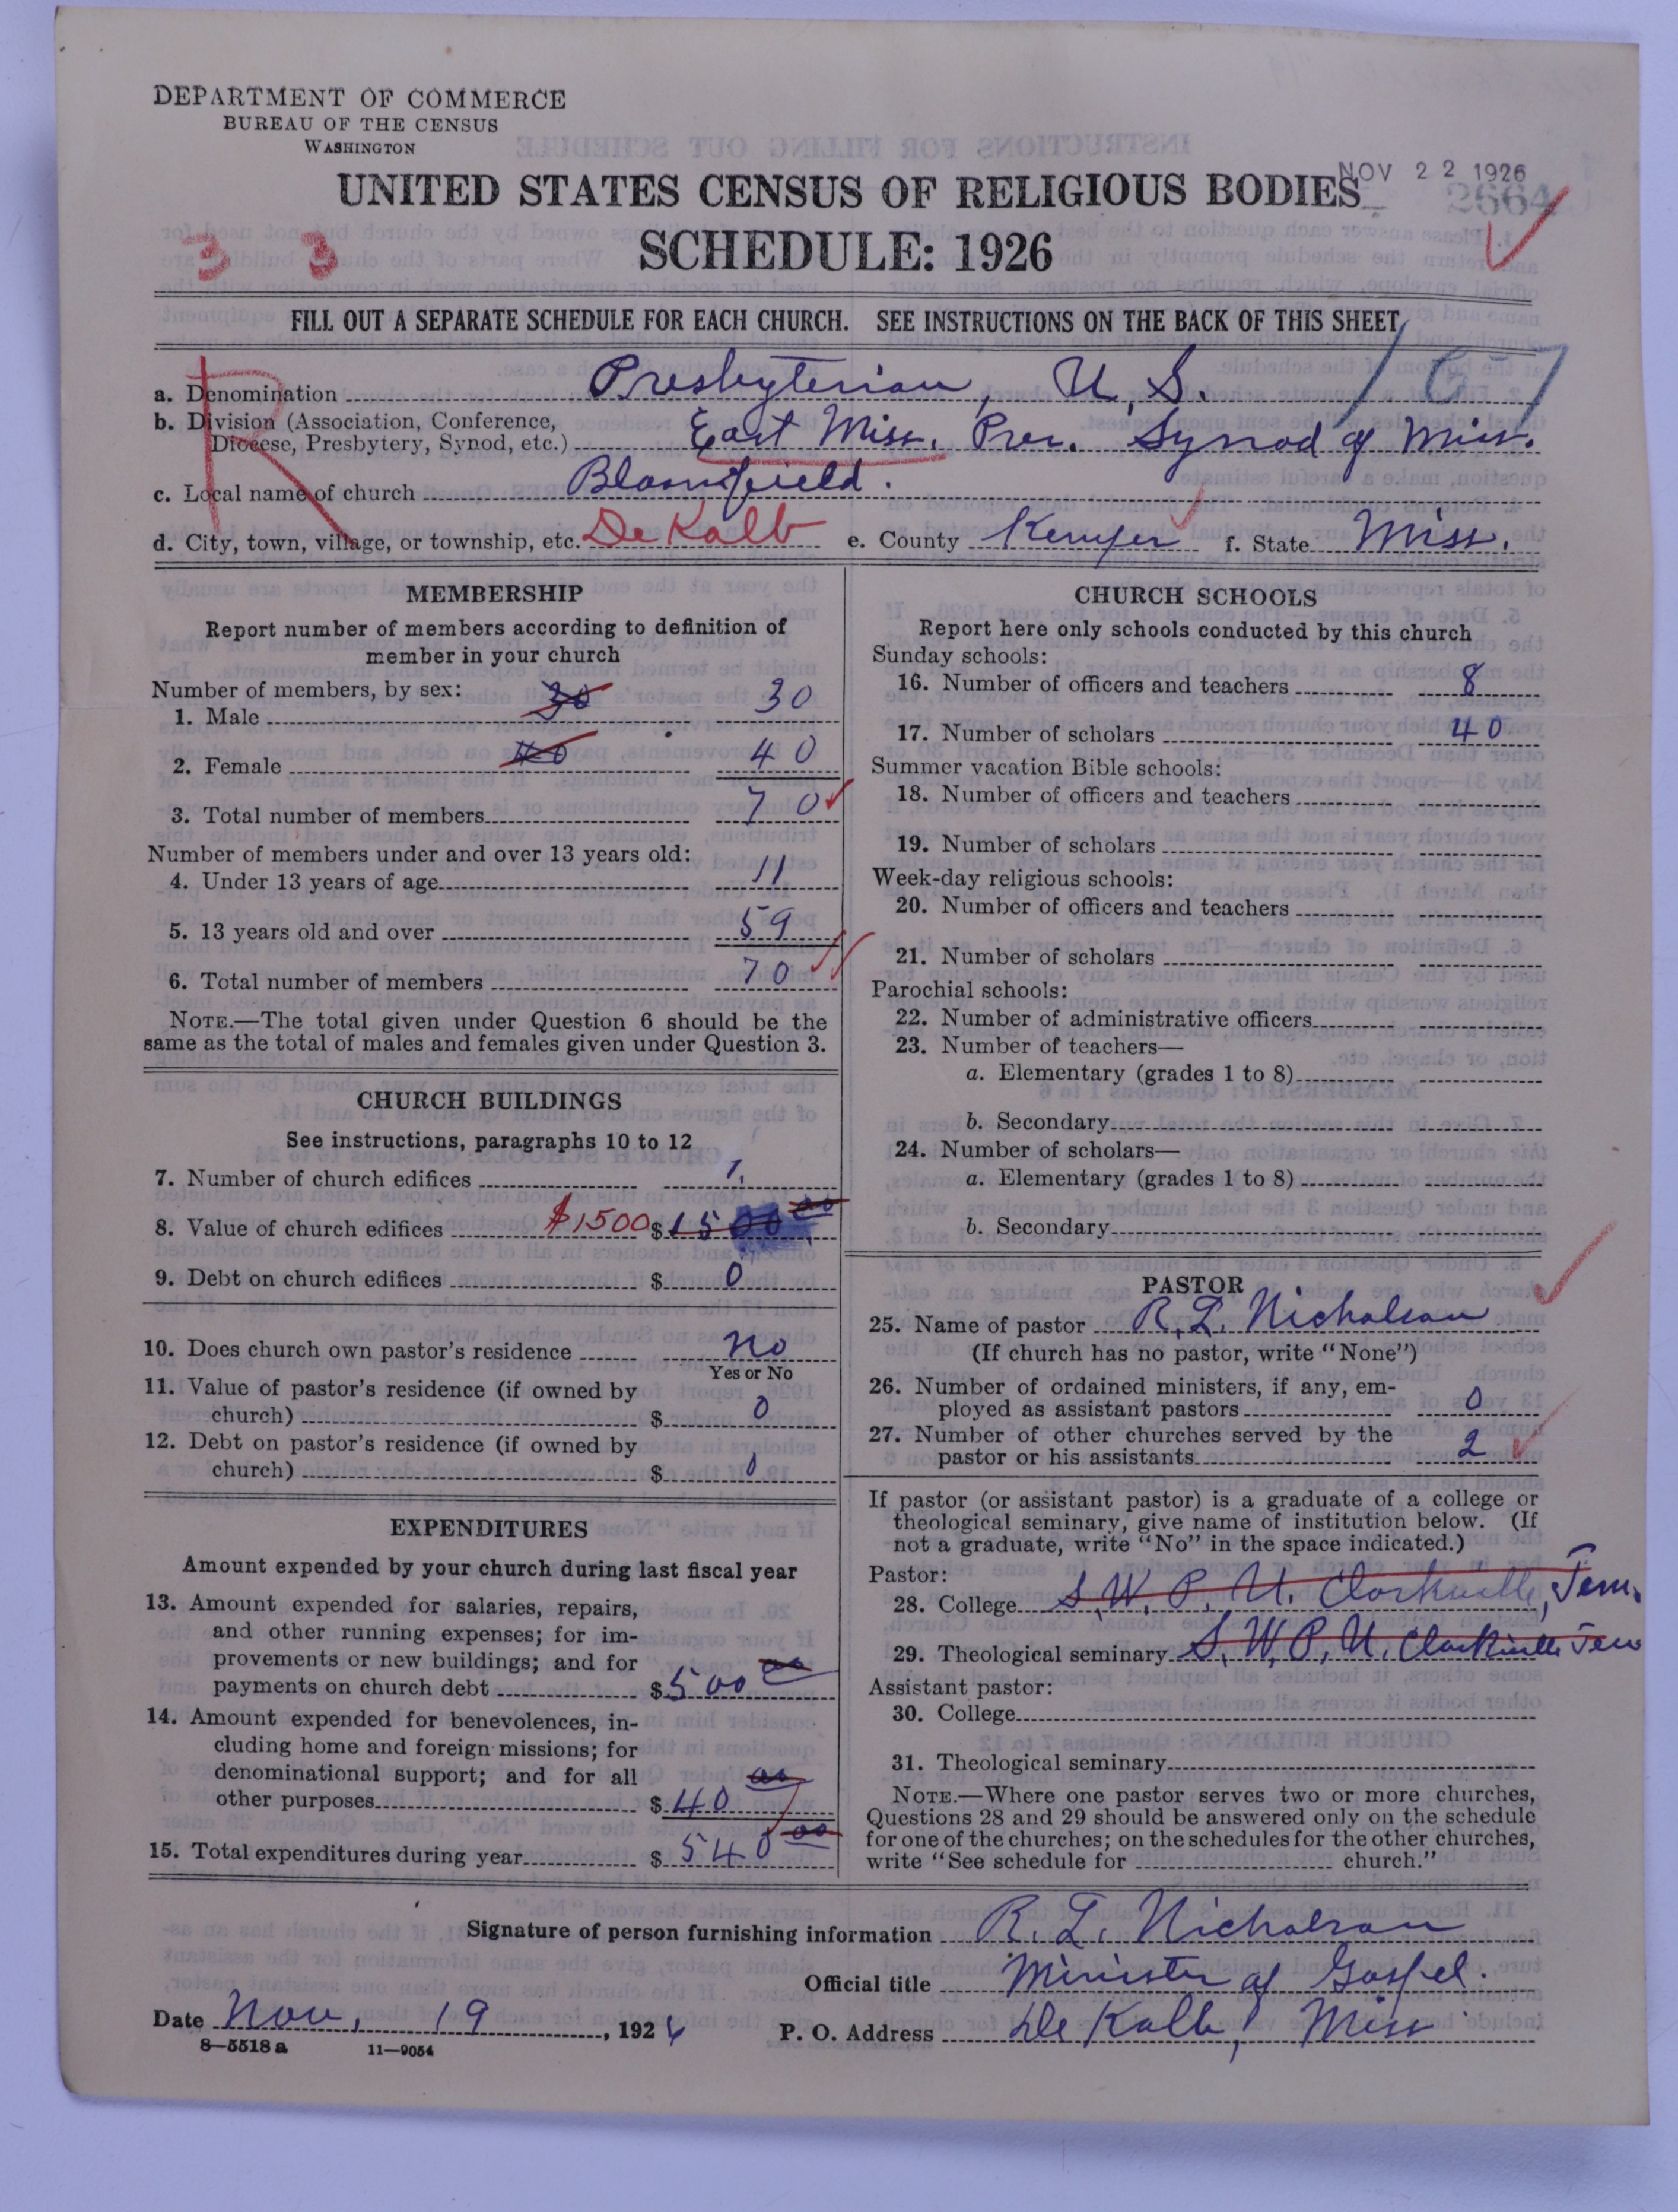 DEPARTMENT OF COMMERCE
BUREAU OF THE CENSUS
WASHINGTON
UNITED STATES CENSUS OF RELIGIOUS BODIES
NOV 22 1926
2664
SCHEDULE: 1926
3 3
FILL OUT A SEPARATE SCHEDULE FOR EACH CHURCH. SEE INSTRUCTIONS ON THE BACK OF THIS SHEET
R
a. Denomination Presbyterian, U.S.
b. Division (Association, Conference,
Diocese, Presbytery, Synod, etc.) East Miss. Pres. Synod of Miss.
c. Local name of church Bloomfield.
d. City, town, village, or township, etc. De Kalb e. County Kemper f. State Miss.
MEMBERSHIP
Report number of members according to definition of
member in your church
Number of members, by sex:
1. Male 30 30
2. Female 40 40
3. Total number of members 70
Number of members under and over 13 years old:
4. Under 13 years of age 11
5. 13 years old and over 59
6. Total number of members 70
NOTE.—The total given under Question 6 should be the
same as the total of males and females given under Question 3.
CHURCH BUILDINGS
See instructions, paragraphs 10 to 12
7. Number of church edifices 1.
8. Value of church edifices $1500 $ 1500 00
9. Debt on church edifices $ 0
10. Does church own pastor's residence No
Yes or No
11. Value of pastor's residence (if owned by
church) $ 0
12. Debt on pastor's residence (if owned by
church) $ 0
EXPENDITURES
Amount expended by your church during last fiscal year
13. Amount expended for salaries, repairs,
and other running expenses; for im-
provements or new buildings; and for
payments on church debt $ 500 00
14. Amount expended for benevolences, in-
cluding home and foreign missions; for
denominational support; and for all
other purposes $ 40 00
15. Total expenditures during year $ 540 00
CHURCH SCHOOLS
Report here only schools conducted by this church
Sunday schools:
16. Number of officers and teachers 8
17. Number of scholars 40
Summer vacation Bible schools:
18. Number of officers and teachers
19. Number of scholars
Week-day religious schools:
20. Number of officers and teachers
21. Number of scholars
Parochial schools:
22. Number of administrative officers
23. Number of teachers—
a. Elementary (grades 1 to 8)
b. Secondary
24. Number of scholars—
a. Elementary (grades 1 to 8)
b. Secondary
PASTOR
25. Name of pastor R. L. Nicholson
(If church has no pastor, write "None")
26. Number of ordained ministers, if any, em-
ployed as assistant pastors 0
27. Number of other churches served by the
pastor or his assistants 2
If pastor (or assistant pastor) is a graduate of a college or
theological seminary, give name of institution below. (If
not a graduate, write "No" in the space indicated.)
Pastor:
28. College S. W. P. U. Clarksville, Tenn.
29. Theological seminary S. W. P. U. Clarksville Tenn
Assistant pastor:
30. College
31. Theological seminary
NOTE.—Where one pastor serves two or more churches,
Questions 28 and 29 should be answered only on the schedule
for one of the churches; on the schedules for the other churches,
write "See schedule for church."
Signature of person furnishing information R. L. Nicholson
Official title Minister of Gospel.
Date Nov. 19, 1926 P. O. Address De Kalb, Miss
8—5518a 11—9054